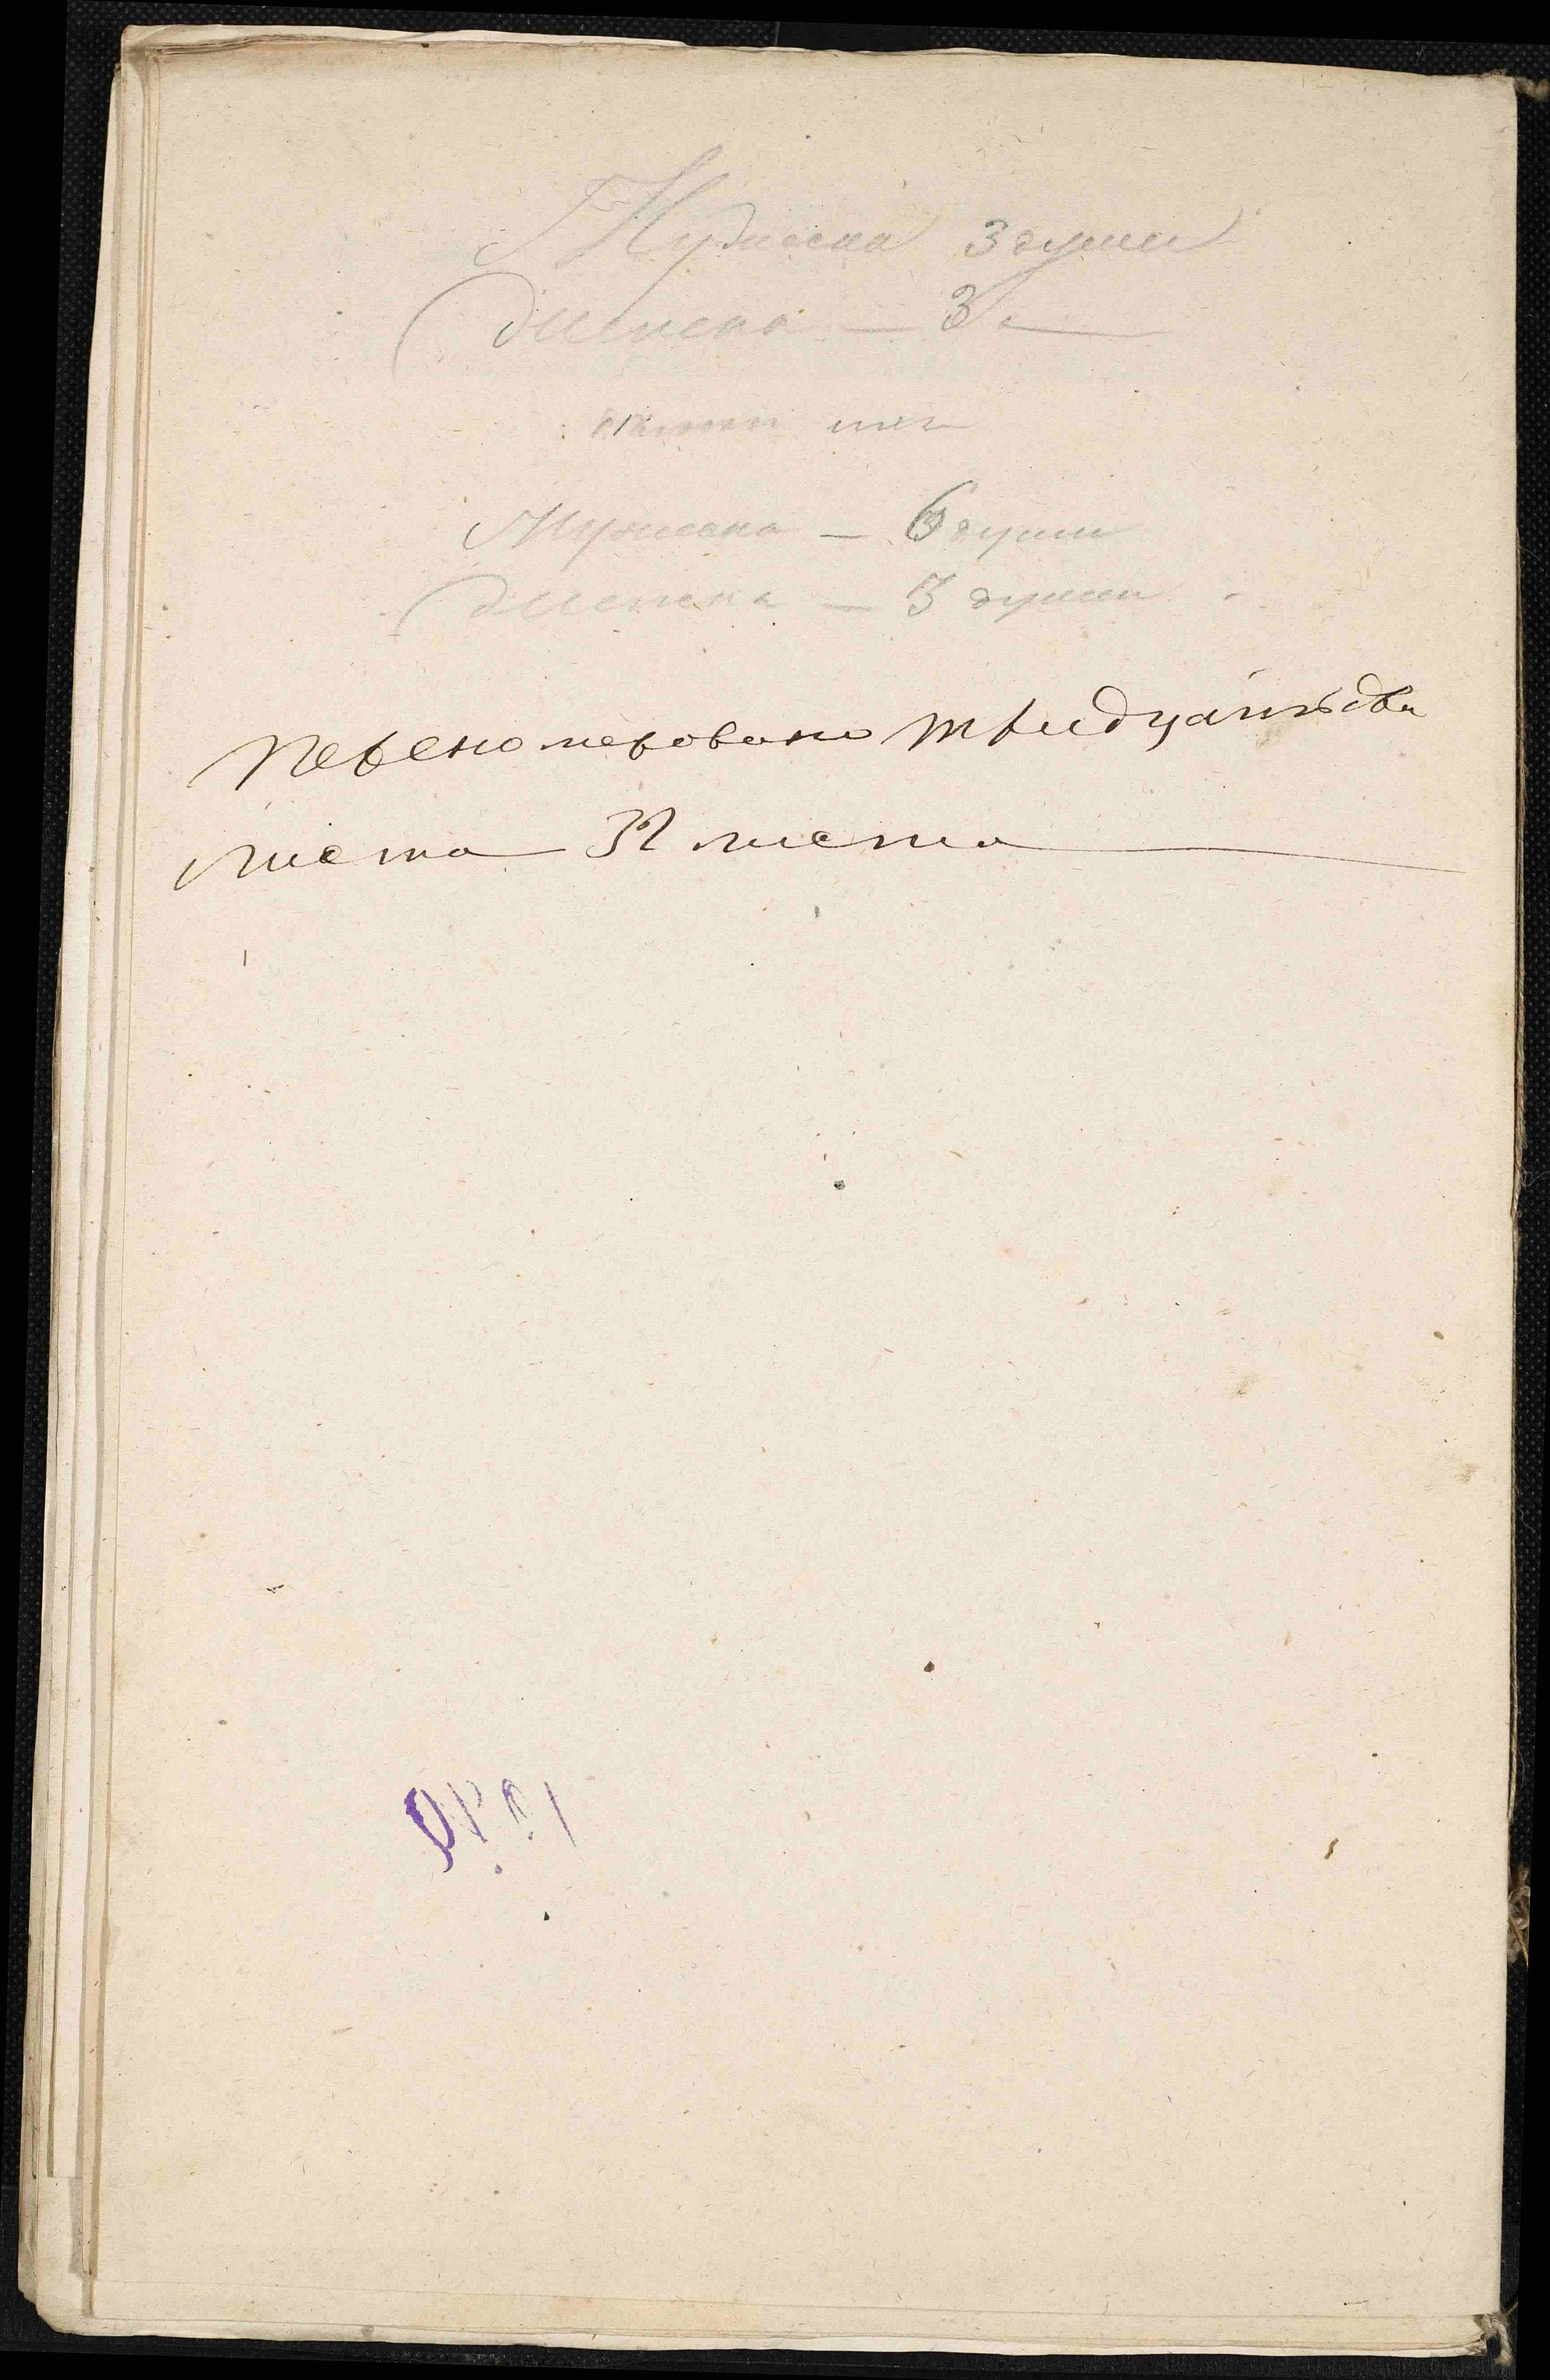 Мужеска 3 души
Женска — 3 —
Мужеска — 6 души
Женска — 3 души
Переномеровано тридцать два
листа 32 листа